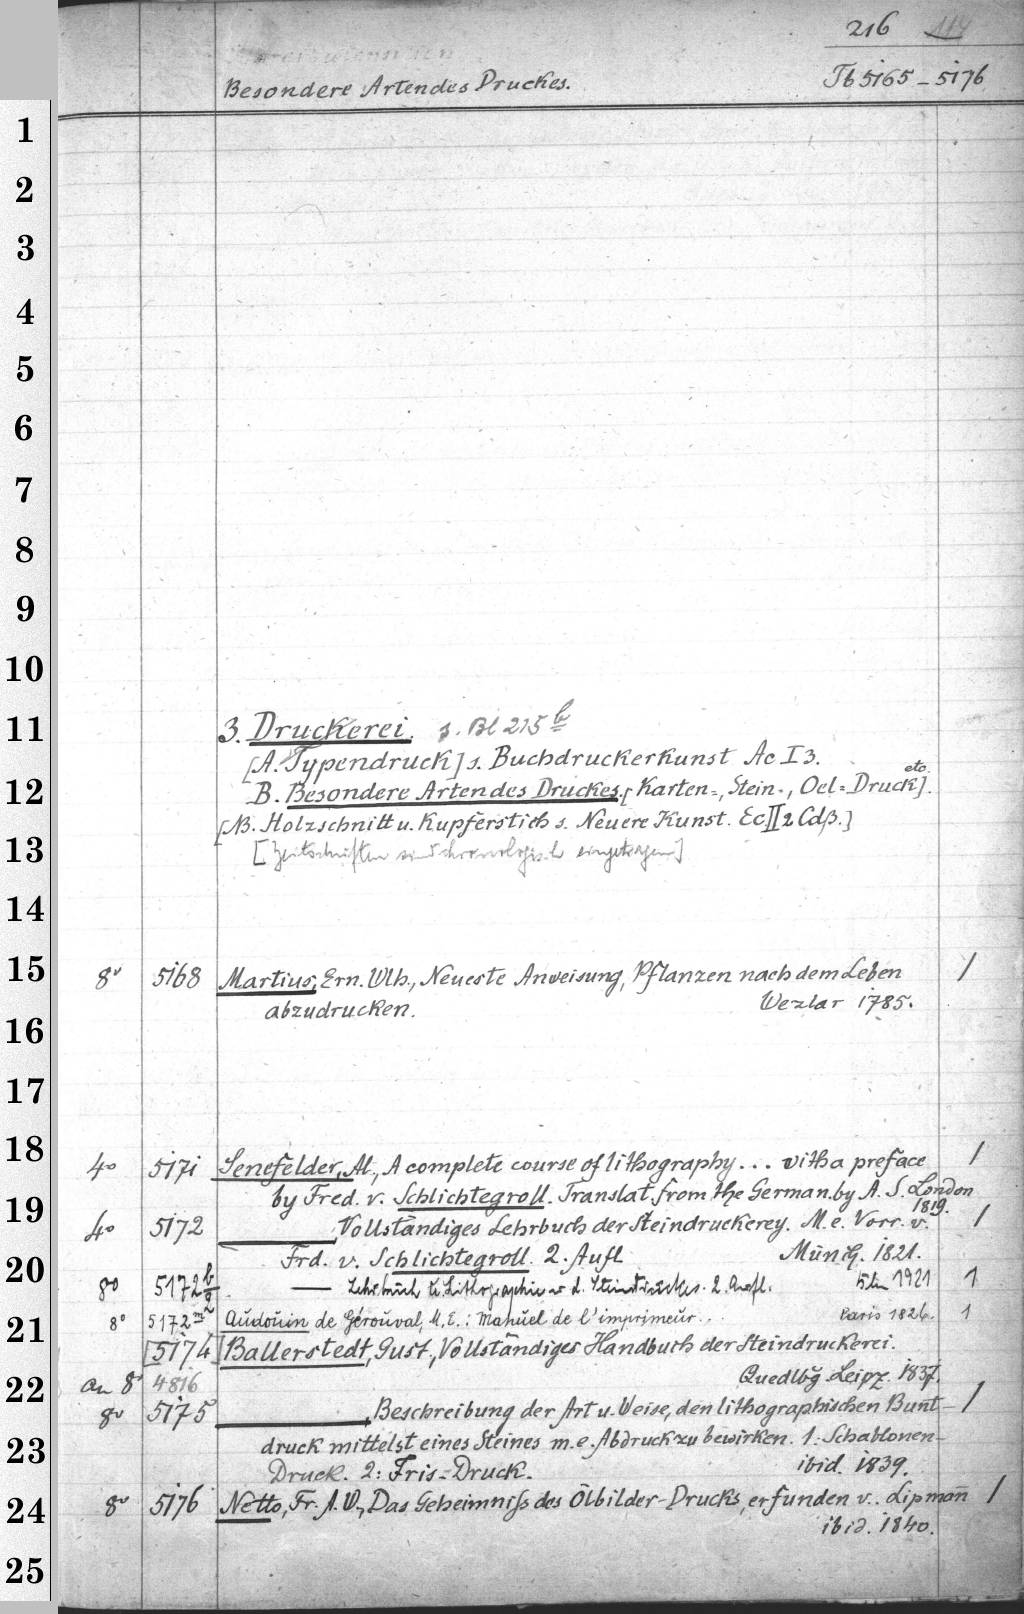 216 114
Besondere Arten des Druckes. Tb 5165 - 5176
1
2
3
4
5
6
7
8
9
10
11 3. Druckerei. s. Bl 215 b
[A. Typendruck] s. Buchdruckerkunst Ac I 3.
12 B. Besondere Arten des Druckes. [Karten-, Stein-, Oel-Druck etc.].
[NB. Holzschnitt u. Kupferstich s. Neuere Kunst. Ec II 2 Cdβ.]
13 [Zeitschriften sind chronologisch eingetragen]
14
15 8° 5168 Martius, Ern. Wlh., Neueste Anweisung, Pflanzen nach dem Leben 1
abzudrucken. Wezlar 1785.
16
17
18 4° 5171 Senefelder, Al., A complete course of lithography... with a preface 1
by Fred. v. Schlichtegroll. Translat. from the German by A. S. London 1819.
19 4° 5172 ——, Vollständiges Lehrbuch der Steindruckerey. M. e. Vorr. v. 1
20 Frd. v. Schlichtegroll. 2. Aufl Münch. 1821.
8° 5172 — Lehrbuch d. Lithographie u. d. Steindruckes. 2. Aufl. 1921 1
21 8° 5172 m Audouin de Gérouval, M. E.: Manuel de l'imprimeur... Paris 1826. 1
[5174] Ballerstedt, Gust., Vollständiges Handbuch der Steindruckerei.
22 an 8° 4816 Quedlbg Leipz. 1837.
8° 5175 ——, Beschreibung der Art u. Weise, den lithographischen Bunt- 1
23 druck mittelst eines Steines m. e. Abdruck zu bewirken. 1: Schablonen-
Druck. 2: Iris-Druck. ibid. 1839.
24 8° 5176 Netto, Fr. A. W., Das Geheimniß des Ölbilder-Drucks, erfunden v. Lipmañ 1
ibid. 1840.
25